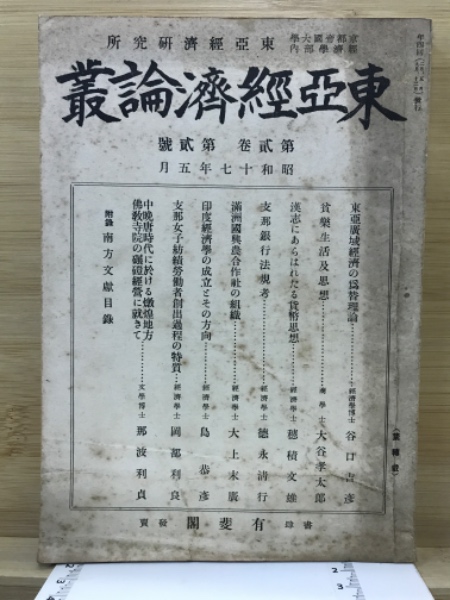 京都帝國大學
經濟學部內
東亞經濟研究所
東亞經濟論叢
第貳卷 第貳號
昭和十七年五月
東亞廣域經濟の爲替理論……經濟學博士 谷口吉彥
貨樂生活及思想……商學士 大谷孝太郎
漢志にあらはれたる貨幣思想……經濟學士 穗積文雄
支那銀行法規考……經濟學士 德永清行
滿洲國興農合作社の組織……經濟學士 大上末廣
印度經濟學の成立とその方向……經濟學士 島恭彥
支那女子紡績勞働者創出過程の特質……經濟學士 岡部利良
中晚唐時代に於ける燉煌地方
佛敎寺院の碾磑經營に就きて……文學博士 那波利貞
附錄 南方文獻目錄
有斐閣
發賣